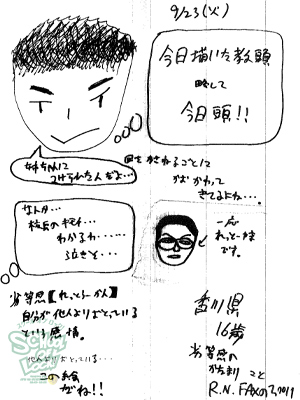 9/23(火)
今日描いた教頭
略して
今日頭!!
姉ちゃんに
つけられたんだよ…
回をかさねるごとに
かわって
きてるよね…。
なんか…
校長のキモチ…
わかるわ……
泣きそ…
一応
れっとー妹
です。
劣等感【れっとーかん】
自分が他人よりおとっている
という感情。
他人よりおとっている…
この絵
がね!!
香川県
16歳
劣等感の
かたまり こと
R.N. FAXの
2011